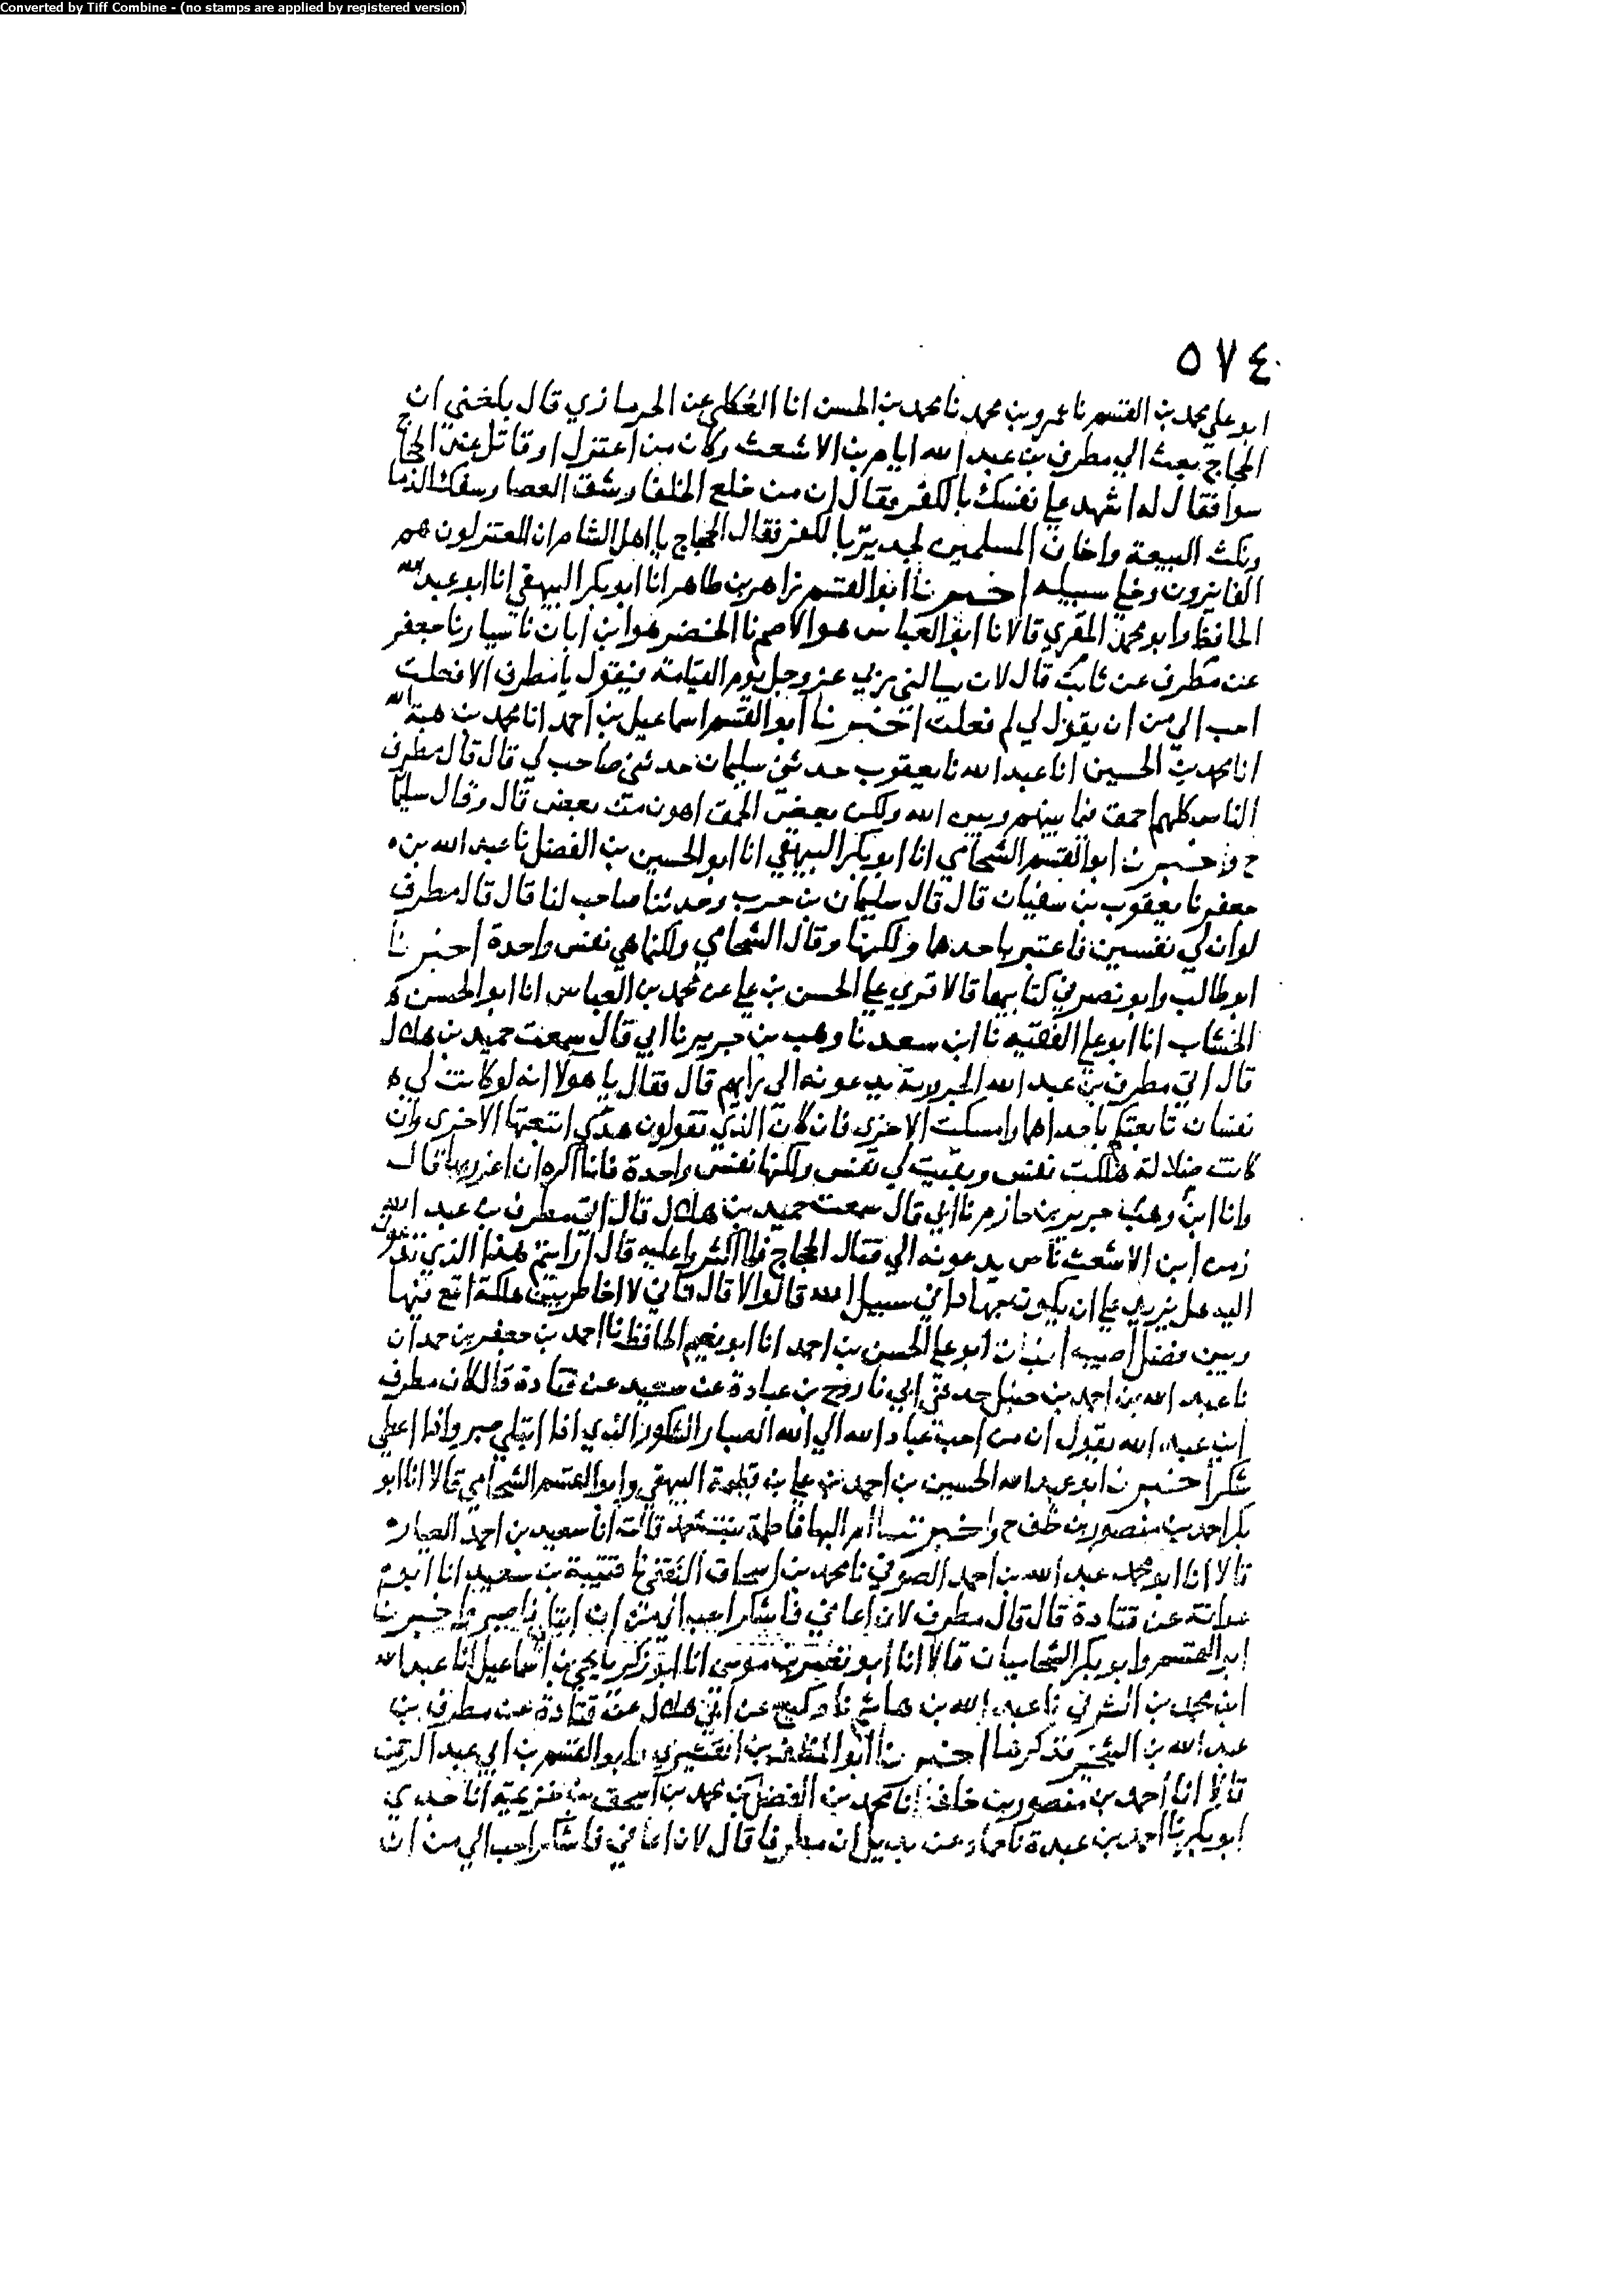 Converted by Tiff Combine - (no stamps are applied by registered version)
٥٧٤
ابو علي محمد بن القسم نا عمرو بن محمد نا محمد بن الحسن انا العكلي عن الحرمازي قال بلغني ان
الحجاج بعث الي مطرف بن عبد الله ايام بن الاشعث وكان من اعتزل او قاتل عند الحجاج
سوا فقال له اشهد علي نفسك بالكفر فقال ان من خلع الخلفا وشق العصا وسفك الدما
ونكث البيعة واخاف المسلمين لجدير بالكفر فقال الحجاج يا اهل الشام ان المعتزلون هم
الفايزون وخلي سبيله اخبرنا ابو القسم زاهر بن طاهر انا ابو بكر البيهقي انا ابو عبد الله
الحافظ وابو محمد المقري قالا نا ابو العباس هو الاصم نا الخضر هو ابن ابان نا سيار نا جعفر
عن مطرف عن ثابت قال لان يسالني ربي عز وجل يوم القيامة فيقول يا مطرف الا فعلت
احب الي من ان يقول لي لم فعلت اخبرنا ابو القسم اسماعيل بن احمد انا محمد بن هبة الله
انا محمد بن الحسين انا عبد الله نا يعقوب حدثني سليمان حدثني صاحب لي قال قال مطرف
الناس كلهم احمق فيما بينهم وبين الله ولكن بعض الحمق اهون من بعض قال وقال سليمان
ح واخبرنا ابو القسم الشحامي انا ابو بكر البيهقي انا ابو الحسين بن الفضل نا عبد الله بن
جعفر نا يعقوب بن سفيان قال قال سليمان بن حرب وحدثنا صاحب لنا قال قال مطرف
لو ان لي نفسين فاعتبر باحدها ولكنها وقال الشحامي ولكنما هي نفس واحدة اخبرنا
ابو طالب وابو نصر في كتابيهما قالا قري علي الحسن بن علي عن محمد بن العباس انا ابو الحسن
الخشاب انا ابو علي الفقيه نا ابن سعد نا وهب بن جرير نا ابي قال سمعت حميد بن هلال
قال اتي مطرف بن عبد الله الحرورية يدعونه الي رايهم قال فقال يا هولا انه لو كانت لي
نفسان تابعتكم باحداهما وامسكت الاخري فان كان الذي تقولون هدي اتبعتها الاخرى وان
كانت ضلالة هلكت نفس وبقيت لي نفس ولكنها نفس واحدة فانا اكره ان اغرر بها قال
وانا ابن وهب جرير بن حازم نا ابي قال سمعت حميد بن هلال قال اتى مطرف بن عبد الله
زمن ابن الاشعث ناس يدعونه الي قتال الحجاج فلما اكثروا عليه قال ارايتم هذا الذي تدعون
اليه هل يزيد علي ان يكون جهادا في سبيل الله قالوا لا قال فاني لا اخاطر بين هلكة اقع فيها
وبين فضل اصيبه انبانا ابو علي الحسن بن احمد انا ابو نعيم الحافظ نا احمد بن جعفر بن حمدان
نا عبد الله بن احمد بن حنبل حدثني ابي نا روح بن عبادة عن سعيد عن قتادة قال كان مطرف
ابن عبد الله يقول ان من احب عباد الله الي الله الصبار الشكور الذي اذا ابتلي صبر واذا اعطي
شكر اخبرنا ابو عبد الله الحسين بن احمد بن علي بن فطيمة البيهقي وابو القسم الشحامي قالا انا ابو
بكر احمد بن منصور بن خلف ح واخبرتنا ام البها فاطمة بنت محمد قالت انا سعيد بن احمد العيار
قالا انا ابو محمد عبد الله بن احمد الصوفي نا محمد بن اسحاق الثقفي نا قتيبة بن سعيد انا ابو
عوانة عن قتادة قال قال مطرف لان اعافي فاشكر احب الي من ان ابتلي فاصبر واخبرنا
ابو القسم وابو بكر الشحاميان قالا انا ابو نصر بن موسى انا ابو زكريا يحي بن اسماعيل انا عبد الله
ابن محمد بن الشرقي نا عبد الله بن هاشم نا وكيع عن ابي هلال عن قتادة عن مطرف بن
عبد الله بن الشخير فذكرها اخبرنا ابو المظفر بن القشيري وابو القسم بن ابي عبد الرحمن
قالا انا احمد بن منصور بن خلف انا محمد بن الفضل بن محمد بن اسحق بن خزيمة انا جدي
ابو بكر نا احمد بن عبدة نا حماد عن بديل ان مطرفا قال لان اعافي فاشكر احب الي من ان